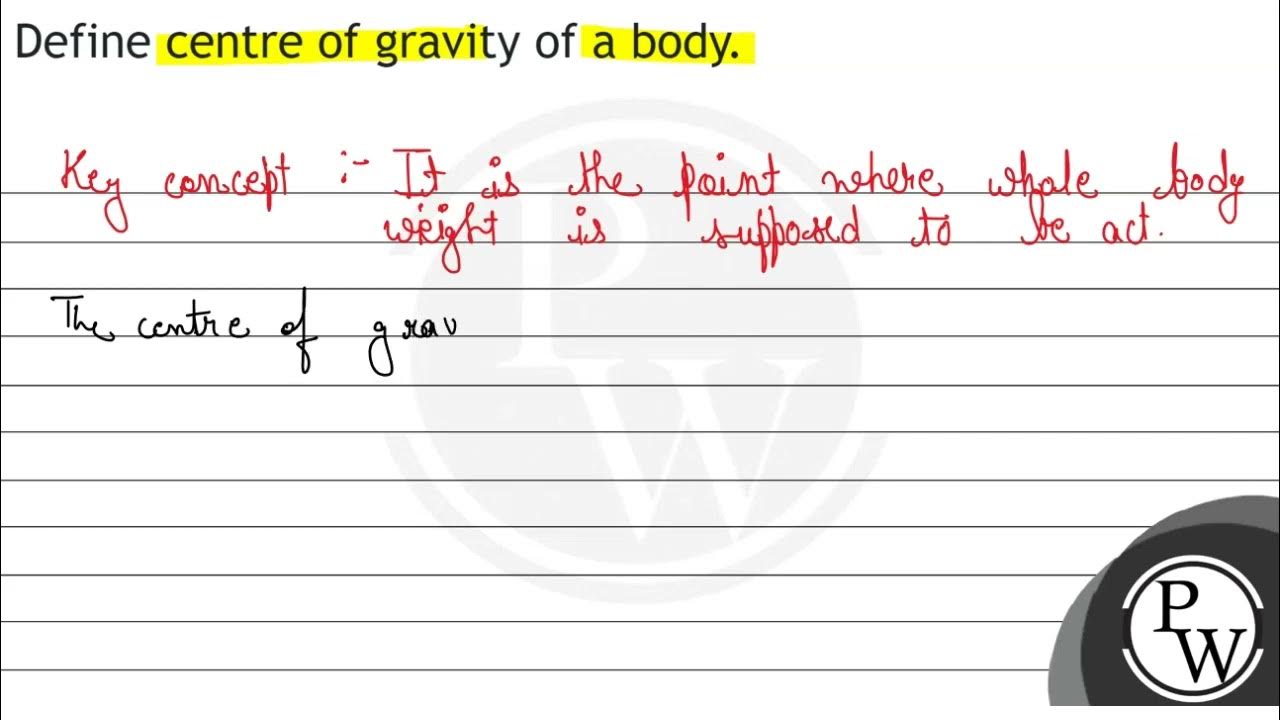 Define centre of gravity of a body.
Key concept :- It is the point where whole body
weight is supposed to be act.
The centre of grav
PW
PW